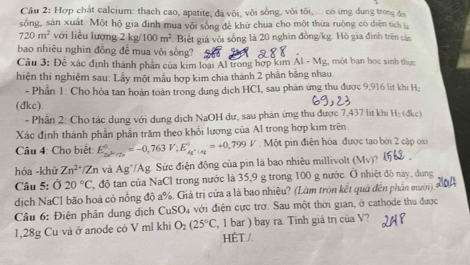 Câu 2: Hợp chất calcium: thạch cao, apatite, đá vôi, vôi sống, vôi tôi, ... có ứng dụng trong đời
sống, sản xuất. Một hộ gia đình mua vôi sống để khử chua cho một thửa ruộng có diện tích là
720 m² với liều lượng 2 kg/100 m². Biết giá vôi sống là 20 nghìn đồng/kg. Hộ gia đình trên cần
bao nhiêu nghìn đồng để mua vôi sống? 288
Câu 3: Để xác định thành phần của kim loại Al trong hợp kim Al - Mg, một bạn học sinh thực
hiện thí nghiệm sau: Lấy một mẫu hợp kim chia thành 2 phần bằng nhau.
- Phần 1: Cho hòa tan hoàn toàn trong dung dịch HCl, sau phản ứng thu được 9,916 lít khí H₂
(đkc) 69,23
- Phần 2: Cho tác dụng với dung dịch NaOH dư, sau phản ứng thu được 7,437 lít khí H₂ (đkc)
Xác định thành phần phần trăm theo khối lượng của Al trong hợp kim trên
Câu 4: Cho biết: E°Zn²⁺/Zn = -0,763 V; E°Ag⁺/Ag = +0,799 V. Một pin điện hóa được tạo bởi 2 cặp oxi
hóa -khử Zn²⁺/Zn và Ag⁺/Ag. Sức điện động của pin là bao nhiêu millivolt (Mv)? 1562
Câu 5: Ở 20 °C, độ tan của NaCl trong nước là 35,9 g trong 100 g nước. Ở nhiệt độ này, dung
dịch NaCl bão hoà có nồng độ a%. Giá trị của a là bao nhiêu? (Làm tròn kết quả đến phần mười).
Câu 6: Điện phân dung dịch CuSO₄ với điện cực trơ. Sau một thời gian, ở cathode thu được
1,28g Cu và ở anode có V ml khí O₂ (25°C, 1 bar) bay ra. Tính giá trị của V? 248
HẾT./.